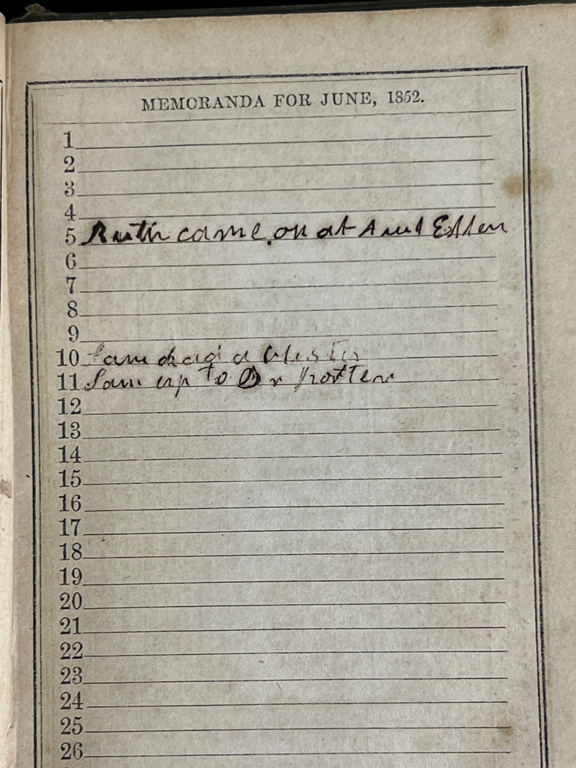 MEMORANDA FOR JUNE, 1852.
1
2
3
4
5 Ruth came on at Aunt Ellen
6
7
8
9
10 Sam had a
11 Sam up to Dr Porter
12
13
14
15
16
17
18
19
20
21
22
23
24
25
26